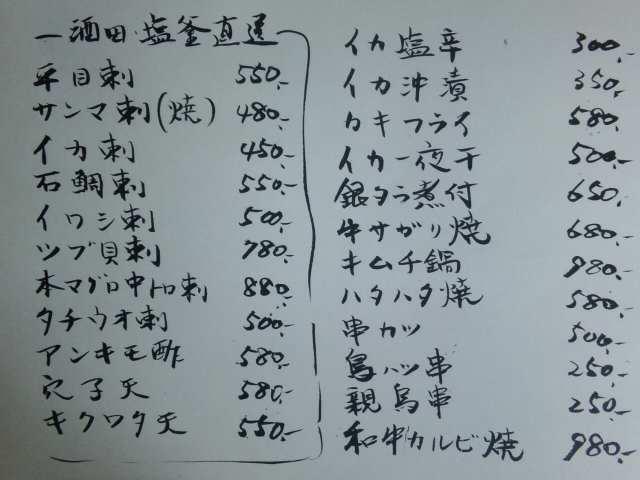 酒田・塩釜直送
平目刺 550.-
サンマ刺(焼) 480.-
イカ刺 450.-
石鯛刺 550.-
イワシ刺 500.-
ツブ貝刺 780.-
本マグロ中トロ刺 880.-
タチウオ刺 500.-
アンキモ酢 580.-
穴子天 580.-
キクワタ天 550.-
イカ塩辛 300.-
イカ沖漬 350.-
カキフライ 580.-
イカ一夜干 500.-
銀タラ煮付 650.-
牛サガリ焼 680.-
キムチ鍋 980.-
ハタハタ焼 580.-
串カツ 500.-
鳥ハツ串 250.-
親鳥串 250.-
和牛カルビ焼 980.-